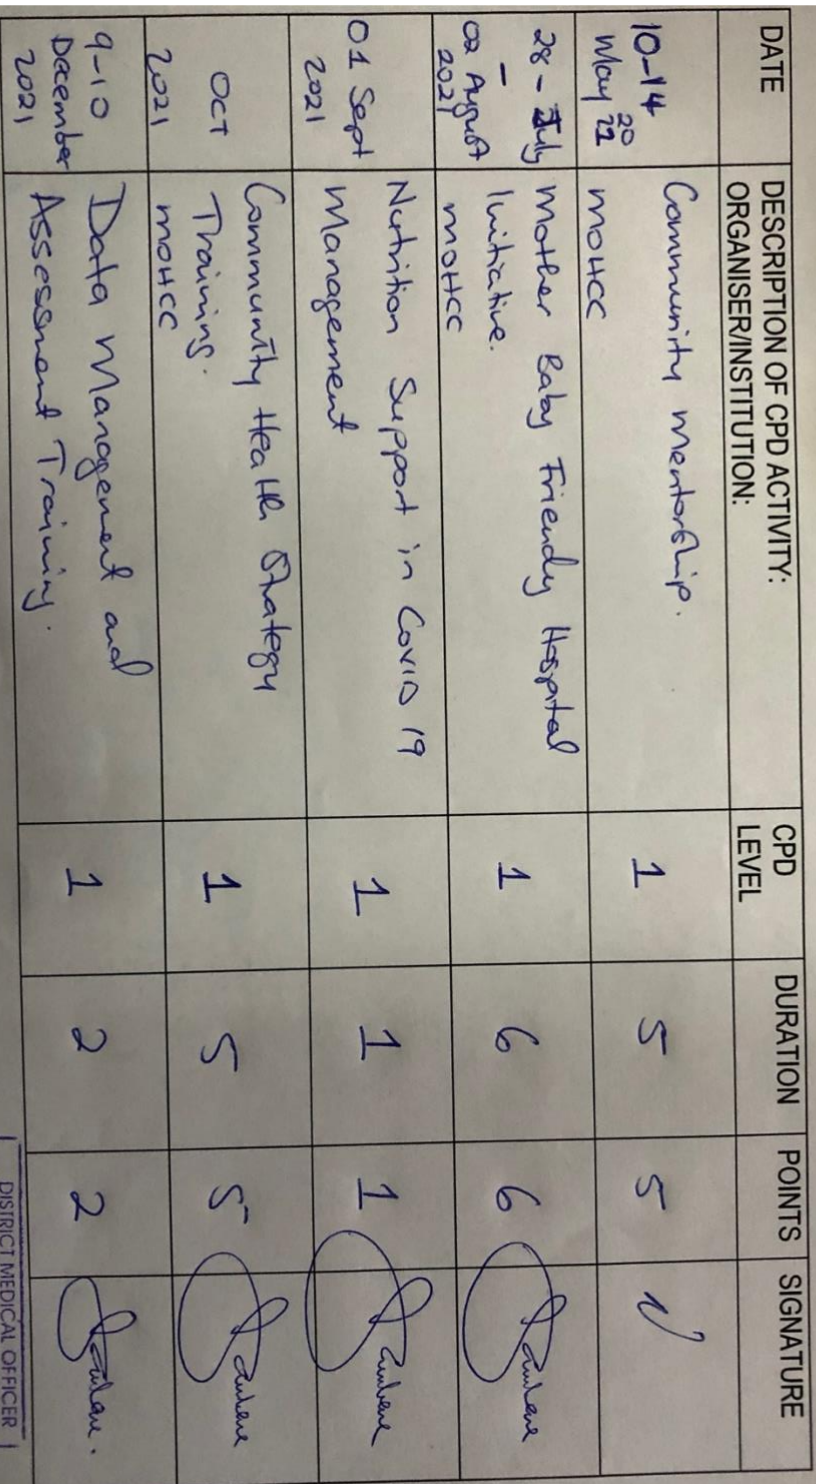 DATE
DESCRIPTION OF CPD ACTIVITY:
ORGANISER/INSTITUTION:
CPD
LEVEL
DURATION
POINTS
SIGNATURE
10-14
May 20
21
Community Mentorship.
MOHCC
1
5
5
28 - July
-
02 August
2021
Mother Baby Friendly Hospital
Initiative.
MOHCC
1
6
6
01 Sept
2021
Nutrition Support in Covid 19
Management
1
1
1
OCT
2021
Community Health Strategy
Training.
MOHCC
1
5
5
9-10
December
2021
Data Management and
Assessment Training.
1
2
2
DISTRICT MEDICAL OFFICER